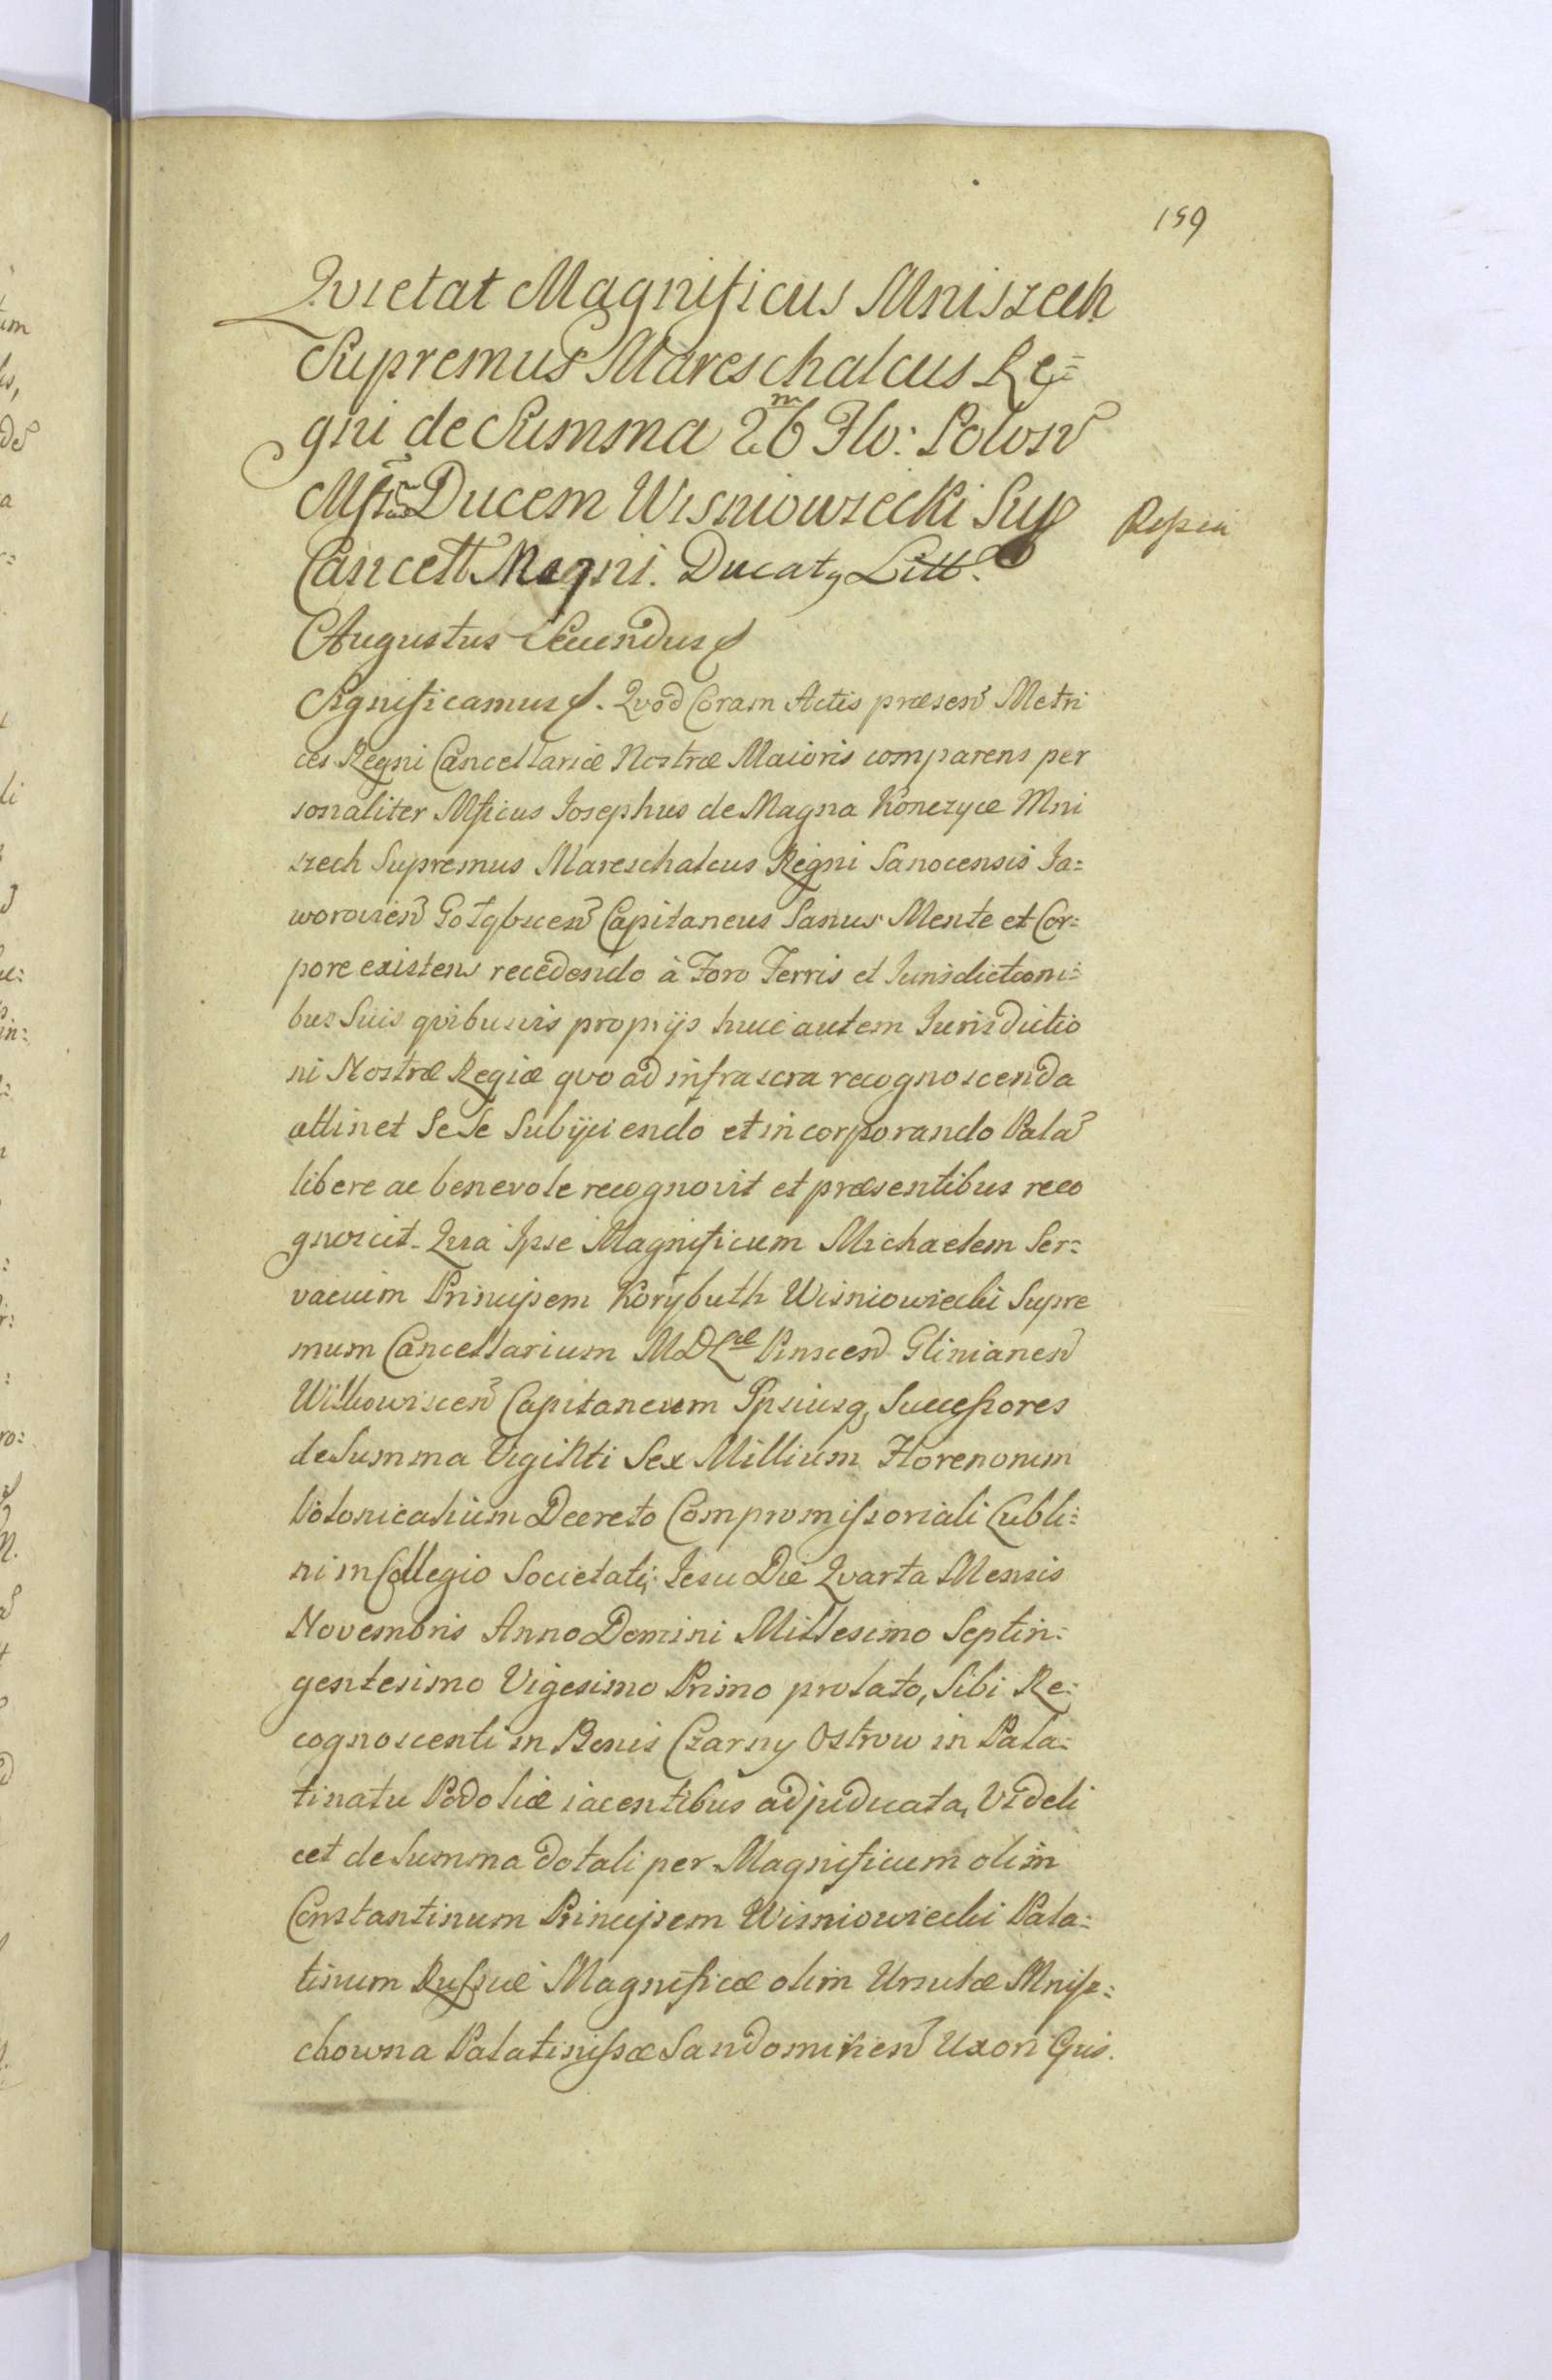 159
Qvietat Magnificus Mniszech
Supremus Mareschalcus Re=
gni de Summa 26 m Flo: Polon
Mfcus Ducem Wisniowiecki Sup
Cancell Magni. Ducatq Litt.
Augustus Secundus
Significamus. Qvod Coram Actis præsen Metri
ces Regni Cancellariæ Nostræ Maioris comparens per
sonaliter Mficus Josephus de Magna Konczyce Mni
szech Supremus Mareschalcus Regni Sanocensis Ja=
worovien Gołąbscen Capitaneus Sanus Mente et Cor=
pore existens recedendo à Foro Terris et Jurisdictioni=
bus Suis qvibusvis proprijs huic autem Jurisdictio
ni Nostræ Regiæ qvo ad infrascra recognoscenda
attinet Se Se Subijciendo et incorporando Pala
libere ac benevole recognovit et præsentibus reco
gnoscit. Qvia Ipse Magnificum Michaelem Ser=
vacium Principem Korybuth Wisniowiecki Supre
mum Cancellarium MDLæ Pinscen Glinianen
Wilkowiscen Capitaneum Ipsiusq Successores
de Summa Viginti Sex Millium Florenorum
Polonicalium Decreto Compromissoriali Lubli=
ni in Collegio Societatis Jesu Die Qvarta Mensis
Novembris Anno Domini Millesimo Septin=
gentesimo Vigesimo Primo prolato, Sibi Re=
cognoscenti in Bonis Czarny Ostrow in Pala=
tinatu Podoliæ iacentibus adjudicata, Videli
cet de Summa dotali per Magnificum olim
Constantinum Principem Wisniowiecki Pala=
tinum Russiæ Magnificæ olim Ursulæ Mnisz=
chowna Palatinissæ Sandomirien Uxori Ejus.